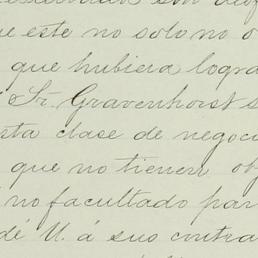 e este no solo no o
que hubiera logra
Sr. Gravenhorst s
sta clase de negoci
que no tienen obj
no facultado par
dé U. á sus contra